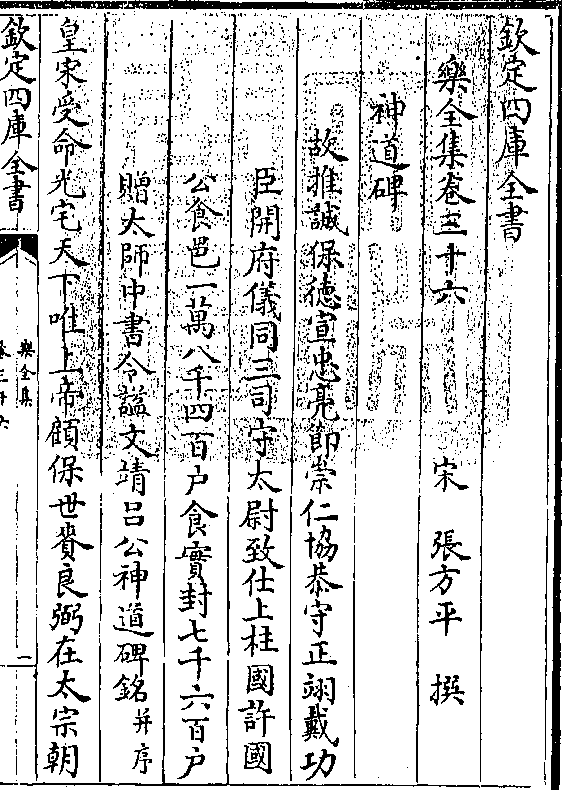 欽定四庫全書
樂全集卷三十六
宋 張方平 撰
神道碑
故推誠保德宣忠亮節崇仁協恭守正翊戴功
臣開府儀同三司守太尉致仕上柱國許國
公食邑一萬八千四百户食實封七千六百户
贈太師中書令諡文靖吕公神道碑銘并序
皇宋受命光宅天下唯上帝顧保世賚良弼在太宗朝
欽定四庫全書
樂全集
卷三十六
一